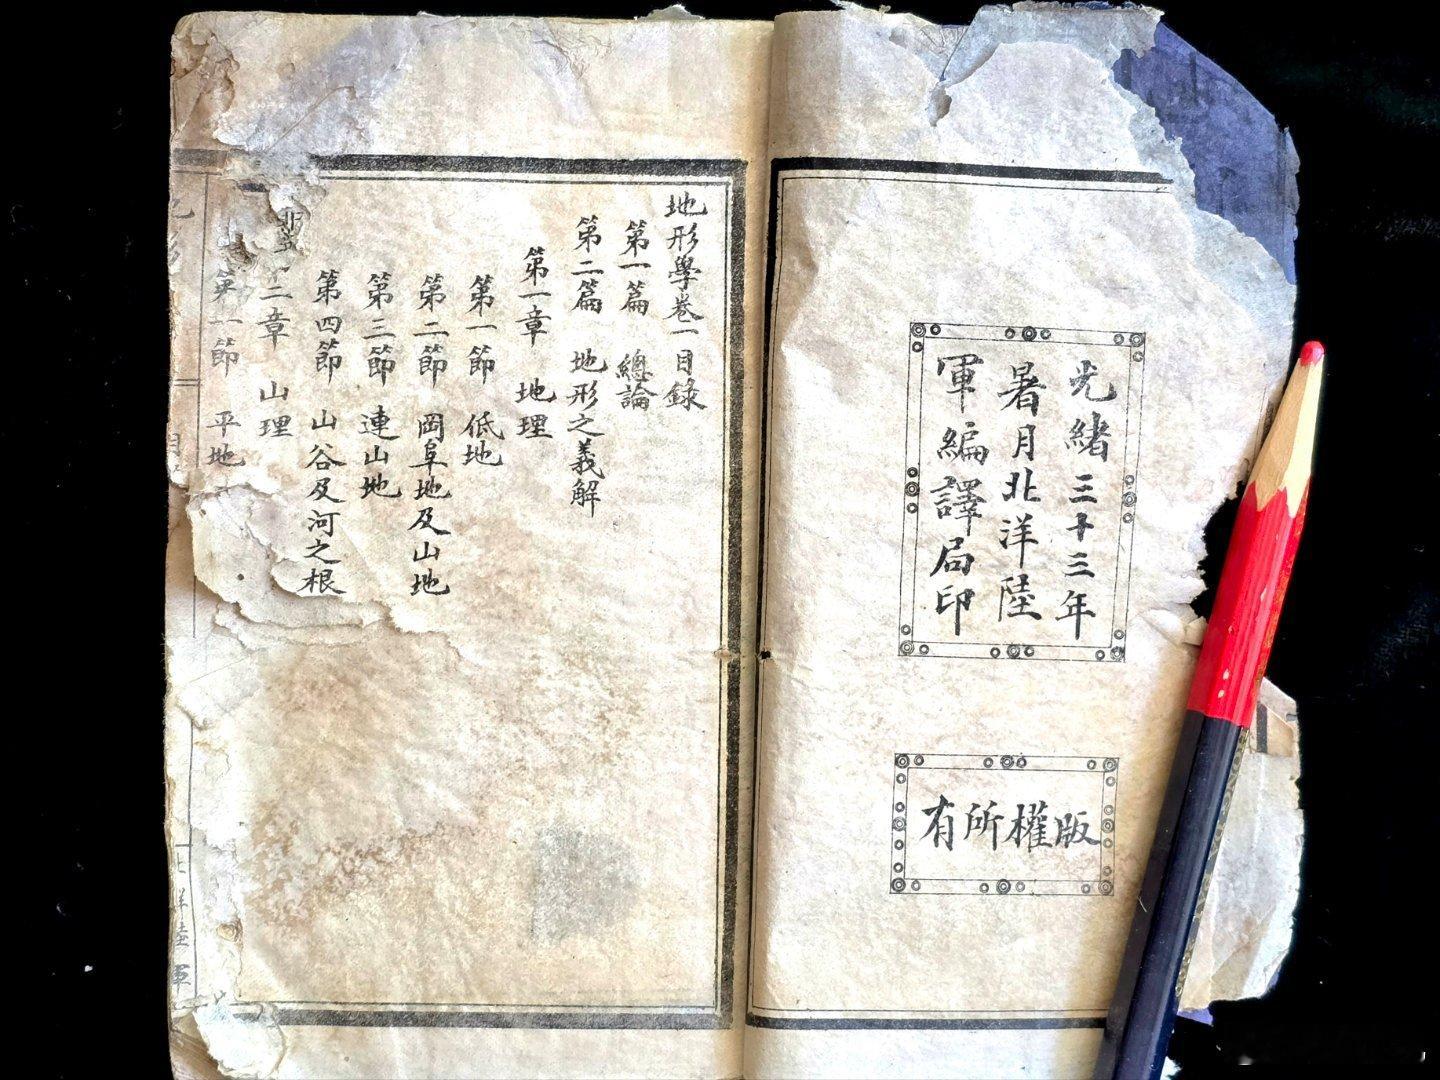 光緒三十三年
暑月北洋陸
軍編譯局印
版權所有
地形學卷一目錄
第一篇 總論
第二篇 地形之義解
第一章 地理
第一節 低地
第二節 岡阜地及山地
第三節 連山地
第四節 山谷及河之根
二章 山理
第一節 平地
洋陸軍